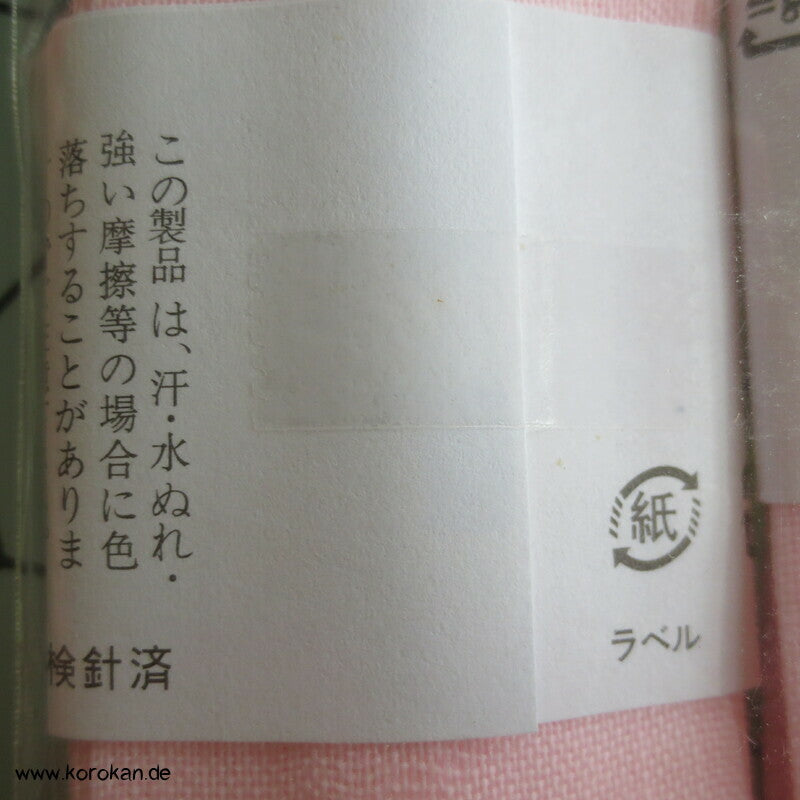 この製品は、汗・水ぬれ・
強い摩擦等の場合に色
落ちすることがありま
検針済
紙
ラベル
www.korokan.de